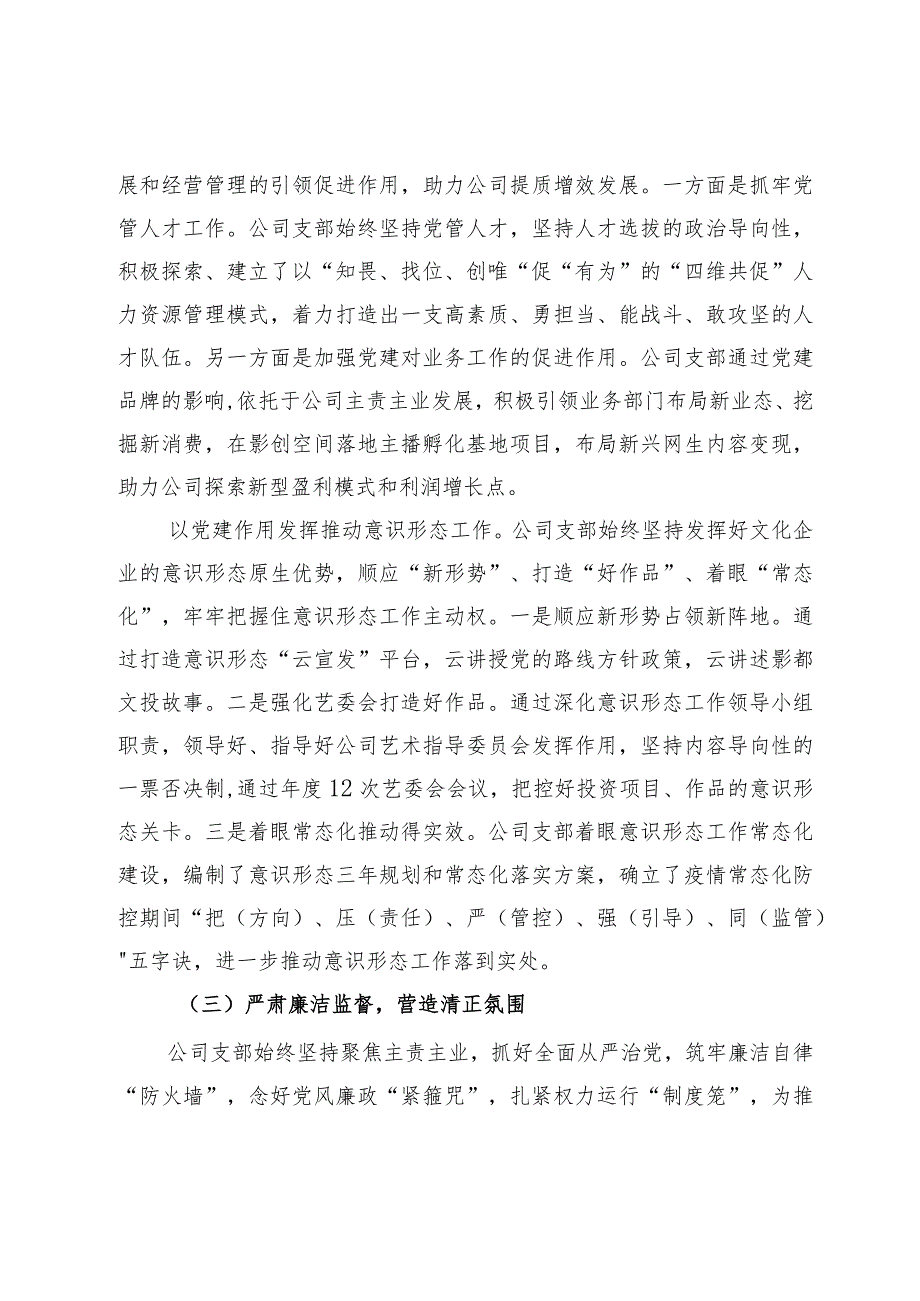 展和经营管理的引领促进作用，助力公司提质增效发展。一方面是抓牢党
管人才工作。公司支部始终坚持党管人才，坚持人才选拔的政治导向性，
积极探索、建立了以“知畏、找位、创唯“促“有为”的“四维共促”人
力资源管理模式，着力打造出一支高素质、勇担当、能战斗、敢攻坚的人
才队伍。另一方面是加强党建对业务工作的促进作用。公司支部通过党建
品牌的影响,依托于公司主责主业发展，积极引领业务部门布局新业态、挖
掘新消费，在影创空间落地主播孵化基地项目，布局新兴网生内容变现，
助力公司探索新型盈利模式和利润增长点。
以党建作用发挥推动意识形态工作。公司支部始终坚持发挥好文化企
业的意识形态原生优势，顺应“新形势”、打造“好作品”、着眼“常态
化”，牢牢把握住意识形态工作主动权。一是顺应新形势占领新阵地。通
过打造意识形态“云宣发”平台，云讲授党的路线方针政策，云讲述影都
文投故事。二是强化艺委会打造好作品。通过深化意识形态工作领导小组
职责，领导好、指导好公司艺术指导委员会发挥作用，坚持内容导向性的
一票否决制,通过年度12次艺委会会议，把控好投资项目、作品的意识形
态关卡。三是着眼常态化推动得实效。公司支部着眼意识形态工作常态化
建设，编制了意识形态三年规划和常态化落实方案，确立了疫情常态化防
控期间“把（方向）、压（责任）、严（管控）、强（引导）、同（监管）
"五字诀，进一步推动意识形态工作落到实处。
（三）严肃廉洁监督，营造清正氛围
公司支部始终坚持聚焦主责主业，抓好全面从严治党，筑牢廉洁自律
“防火墙”，念好党风廉政“紧箍咒”，扎紧权力运行“制度笼”，为推